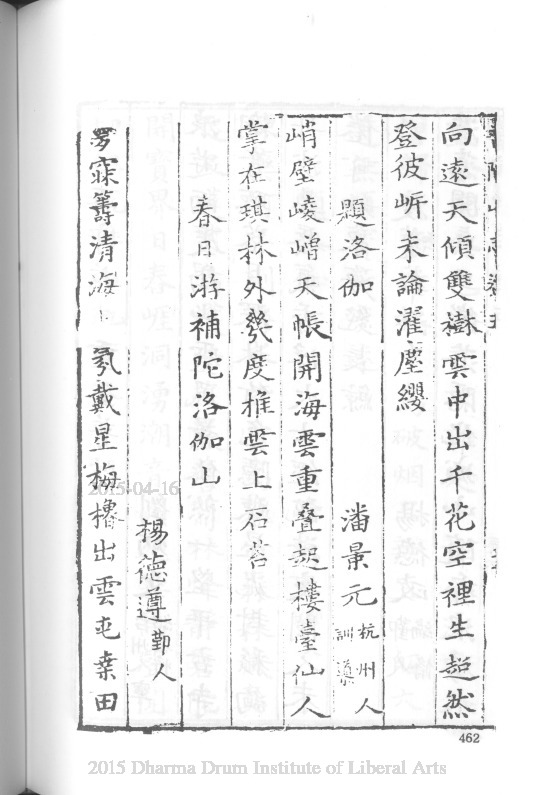 向遠天傾雙樹雲中出千花空裡生超然
登彼岍未論濯塵纓
題洛伽
潘景元杭州人訓導
峭壁崚嶒天帳開海雲重叠起樓臺仙人
掌在琪林外幾度推雲上石苔
春日游補陀洛伽山
楊德遵鄞人
寐籌清海 氛戴星梅櫓出雲屯桑田
462
2015-04-16
2015 Dharma Drum Institute of Liberal Arts